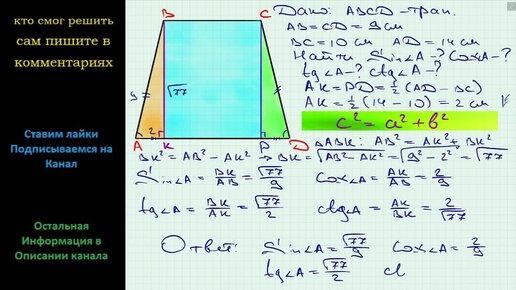 кто смог решить
сам пишите в
комментариях
Ставим лайки
Подписываемся на
Канал
Остальная
Информация в
Описании канала
B C
9 √77
2
A K P D
Дано: ABCD – трап.
AB = CD = 9 см
BC = 10 см AD = 14 см
Найти Sin∠A - ? Cos∠A - ?
tg∠A - ? ctg∠A - ?
AK = PD = ½ (AD - BC)
AK = ½ (14 - 10) = 2 см
c² = a² + b²
△ABK: AB² = AK² + BK²
BK² = AB² - AK² → BK = √AB² - AK² = √9² - 2² = √77
Sin∠A = BK/AB = √77/9 Cos∠A = AK/AB = 2/9
tg∠A = BK/AK = √77/2 ctg∠A = AK/BK = 2/√77
Ответ: Sin∠A = √77/9 Cos∠A = 2/9
tg∠A = √77/2 c